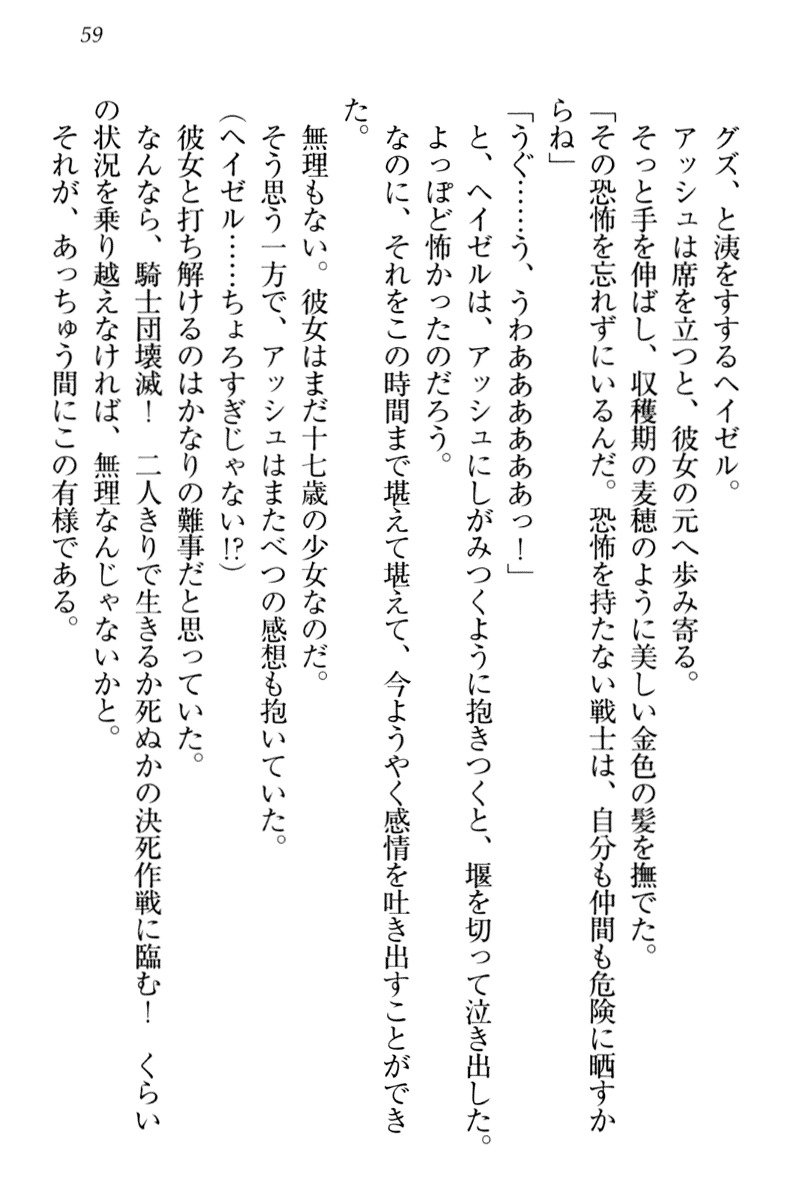 59
グズ、と洟をすするヘイゼル。
アッシュは席を立つと、彼女の元へ歩み寄る。
そっと手を伸ばし、収穫期の麦穂のように美しい金色の髪を撫でた。
「その恐怖を忘れずにいるんだ。恐怖を持たない戦士は、自分も仲間も危険に晒すか
らね」
「うぐ……う、うわああああああっ！」
と、ヘイゼルは、アッシュにしがみつくように抱きつくと、堰を切って泣き出した。
よっぽど怖かったのだろう。
なのに、それをこの時間まで堪えて堪えて、今ようやく感情を吐き出すことができ
た。
無理もない。彼女はまだ十七歳の少女なのだ。
そう思う一方で、アッシュはまたべつの感想も抱いていた。
（ヘイゼル……ちょろすぎじゃない!?）
彼女と打ち解けるのはかなりの難事だと思っていた。
なんなら、騎士団壊滅！　二人きりで生きるか死ぬかの決死作戦に臨む！　くらい
の状況を乗り越えなければ、無理なんじゃないかと。
それが、あっちゅう間にこの有様である。